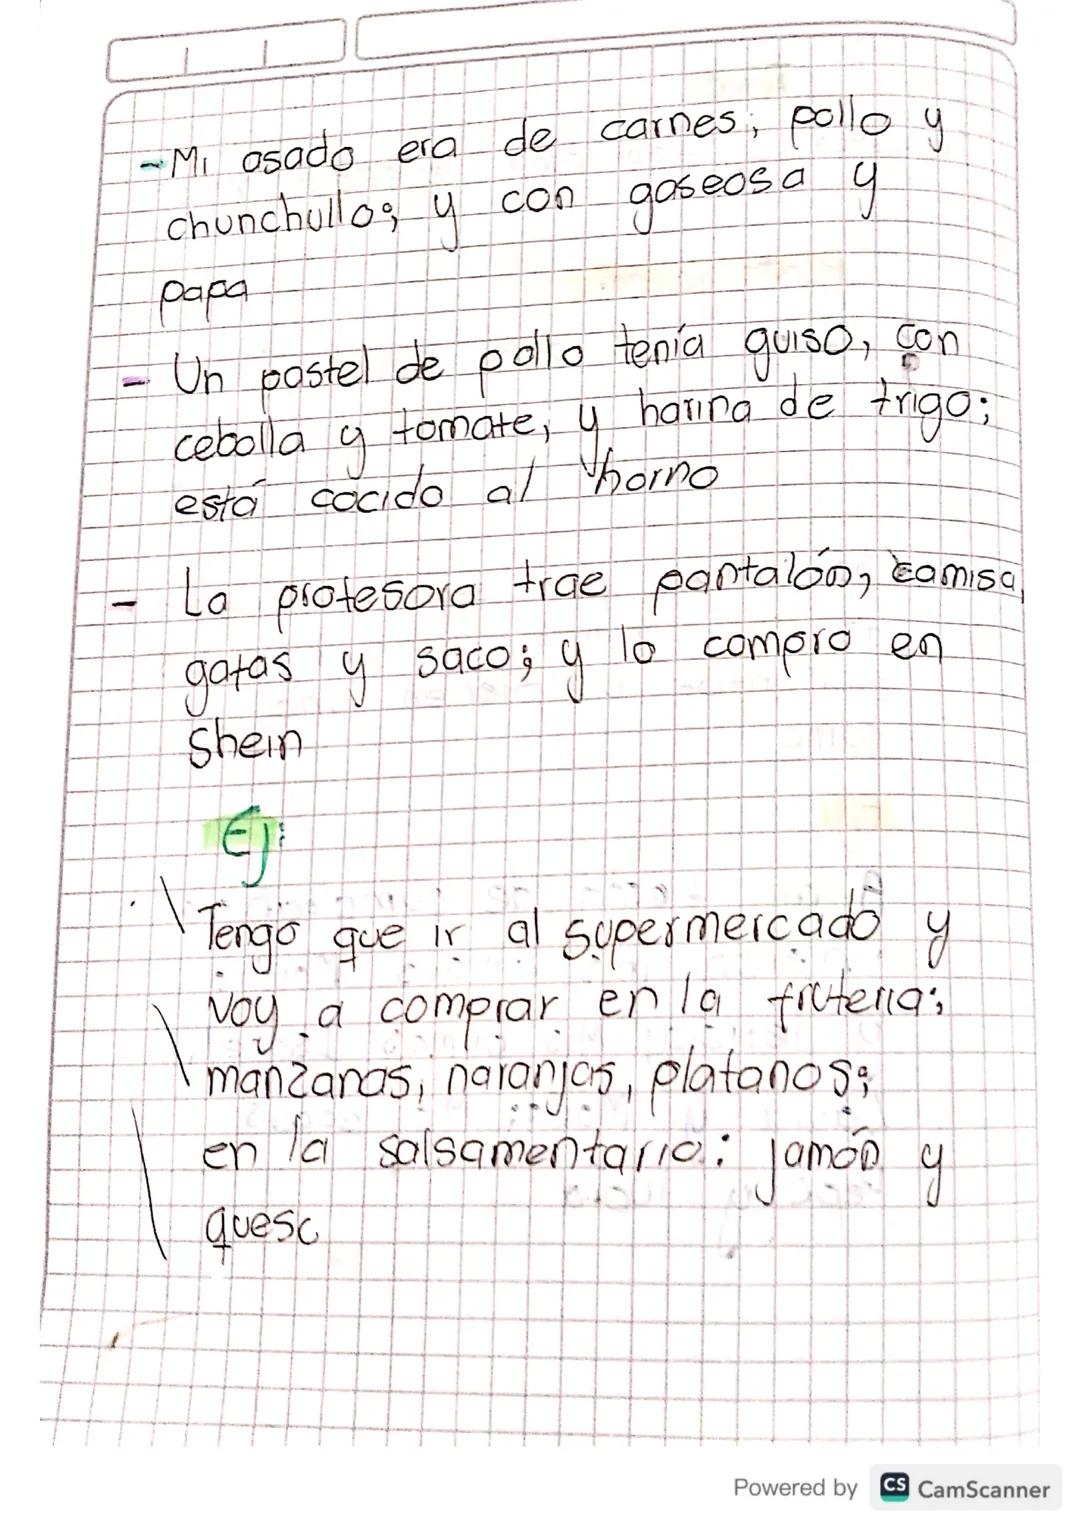 - Mi asado era de carnes; pollo y
chunchullo; y con gaseosa y
papa
- Un pastel de pollo tenía guiso, con
cebolla y tomate, y harina de trigo;
está cocido al horno
- La profesora trae pantalón, camisa,
gafas y saco; y lo compro en
shein
Ej:
Tengo que ir al supermercado y
voy a comprar en la fruteria;
manzanas, naranjas, platanos;
en la salsamentaria: jamón y
queso
Powered by CS CamScanner